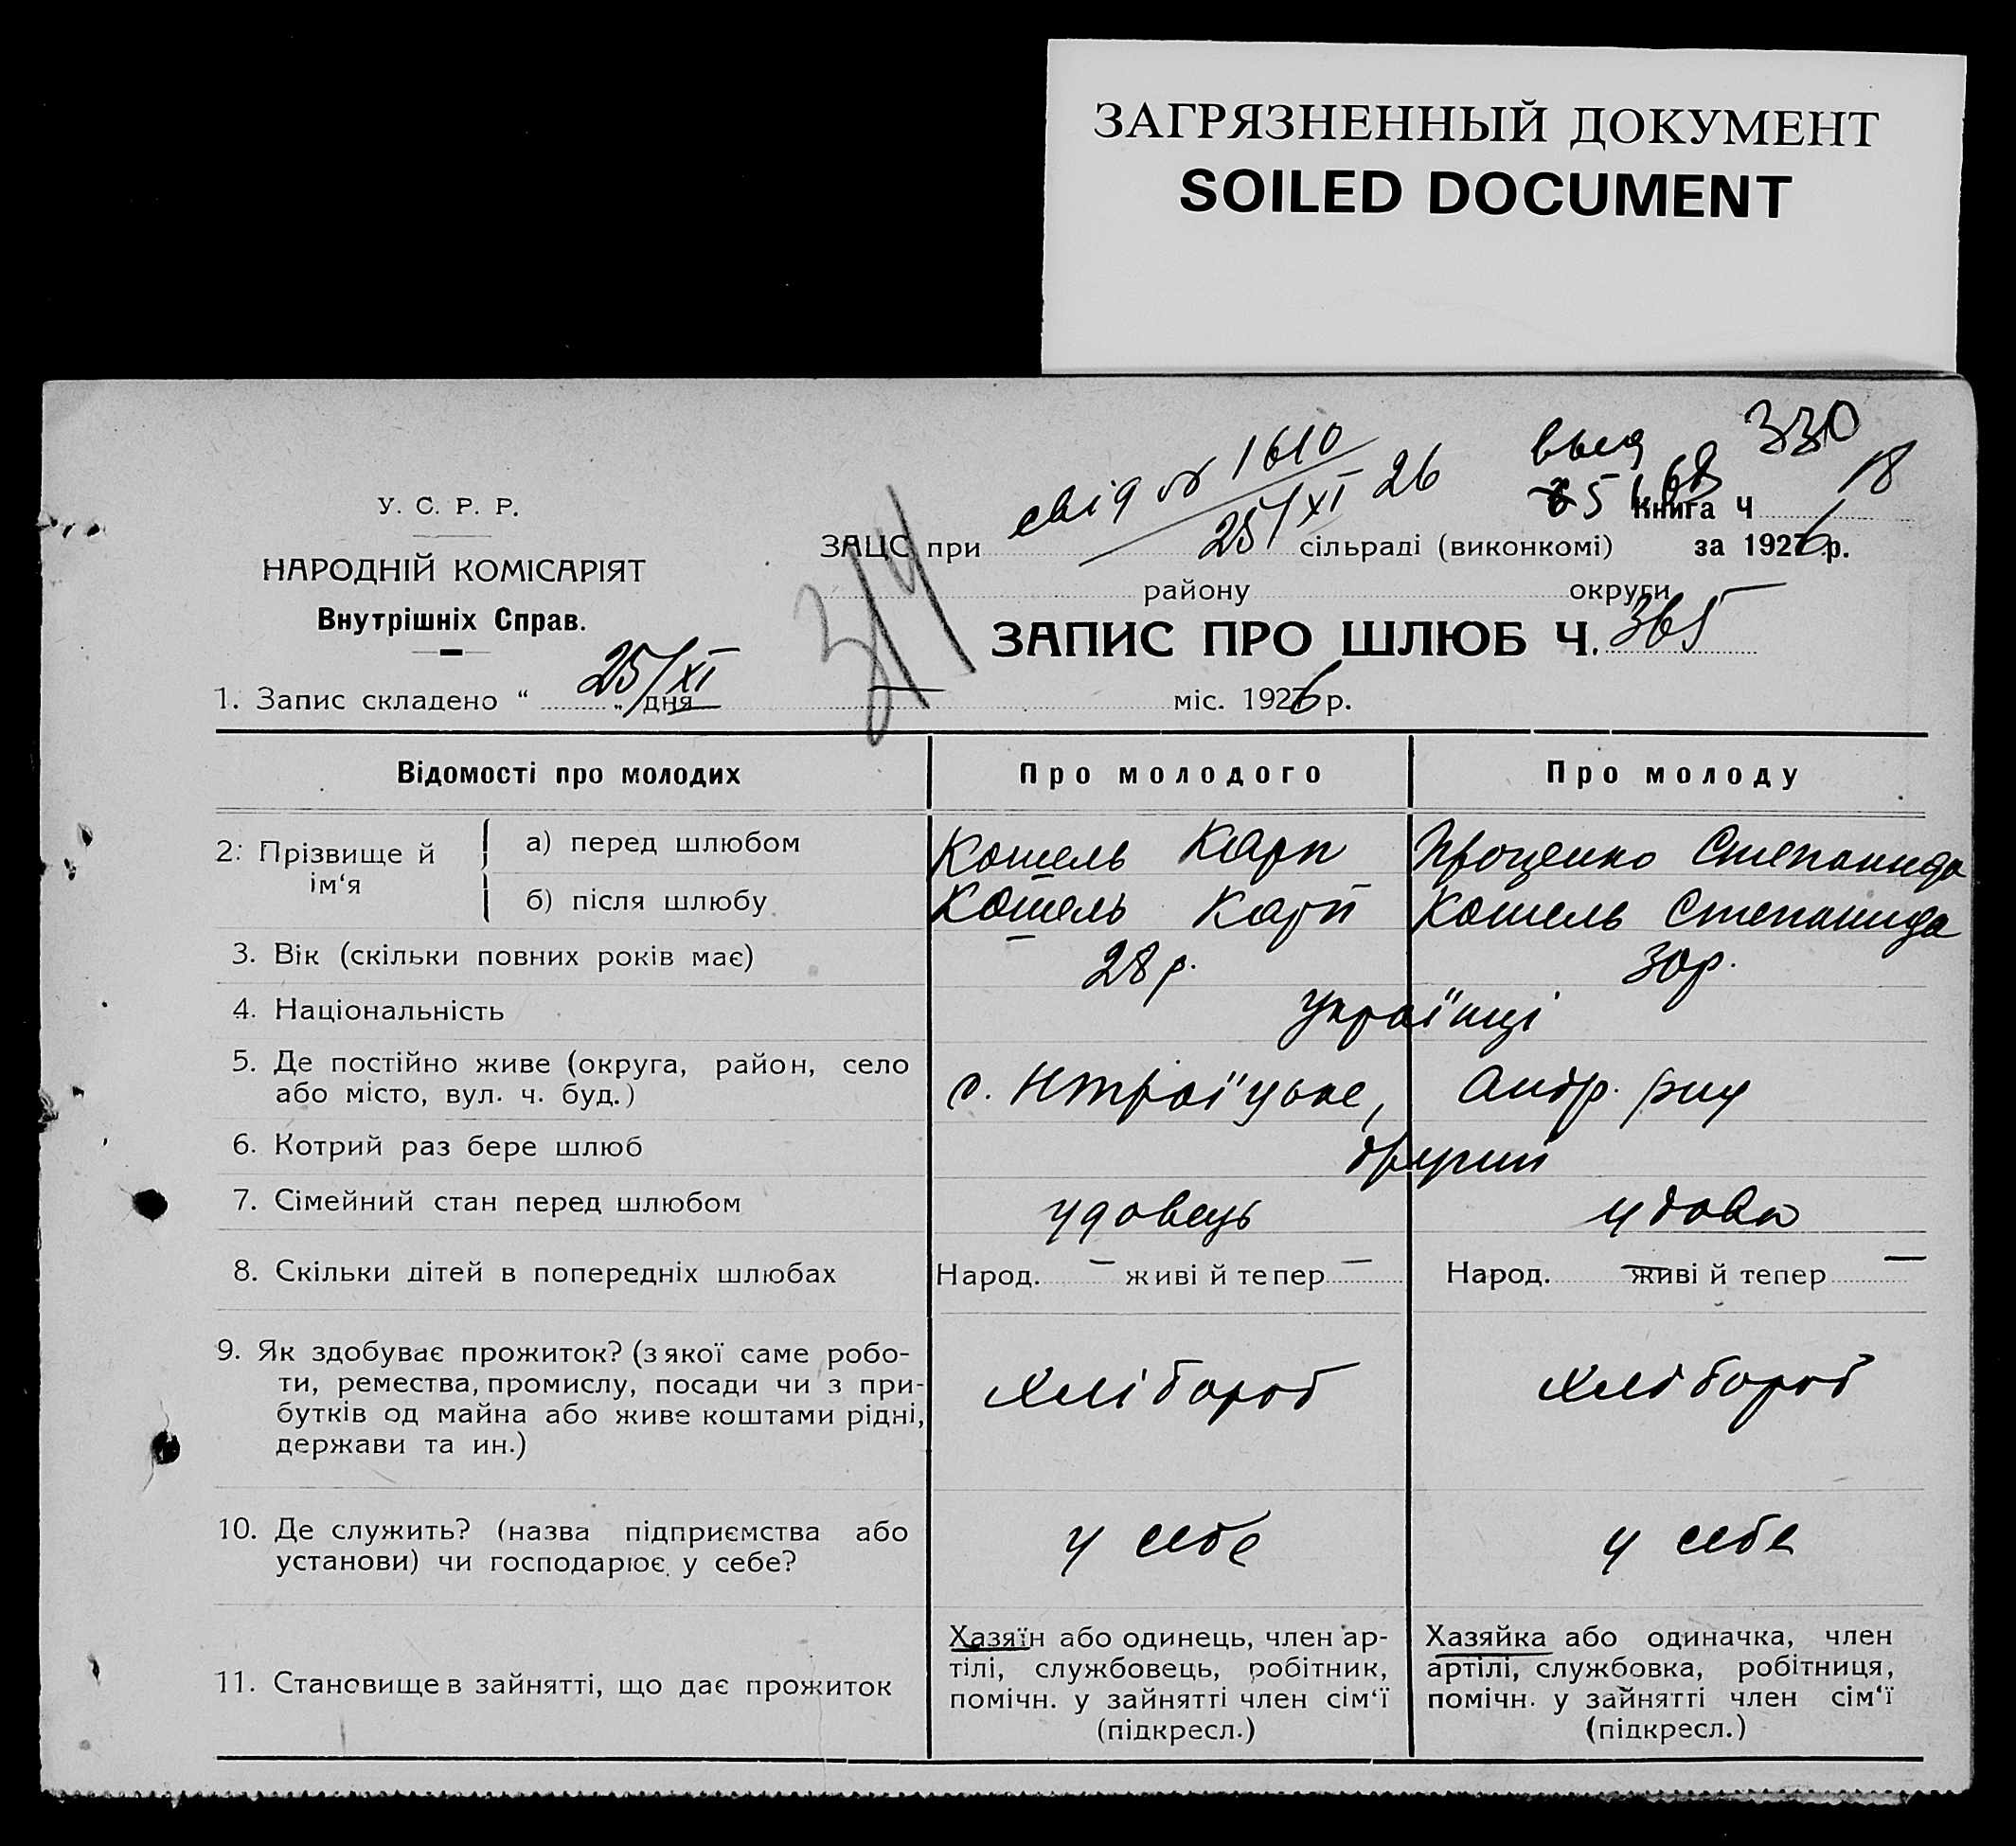 ЗАГРЯЗНЕННЫЙ ДОКУМЕНТ
SOILED DOCUMENT
330
свід № 1610
25/XI 26
18
У. С. Р. Р.
Книга Ч
ЗАЦС при сільраді (виконкомі) за 1926 р.
НАРОДНІЙ КОМІСАРІЯТ
району округи
Внутрішніх Справ.
ЗАПИС ПРО ШЛЮБ Ч. 365
1. Запис складено “ 25/XI „ дня міс. 1926 р.
Відомості про молодих Про молодого Про молоду
2. Прізвище й ім‘я
а) перед шлюбом Кошель Карп Проценко Степанида
б) після шлюбу Кошель Карп Кошель Степанида
3. Вік (скільки повних років має) 28 р. 30 р.
4. Національність українці
5. Де постійно живе (округа, район, село
або місто, вул. ч. буд.) с. Нтроїцьке, Андр. р-ну
6. Котрий раз бере шлюб другий
7. Сімейний стан перед шлюбом удовець удова
8. Скільки дітей в попередніх шлюбах Народ. — живі й тепер — Народ. — живі й тепер —
9. Як здобуває прожиток? (з якої саме робо-
ти, ремества, промислу, посади чи з при-
бутків од майна або живе коштами рідні,
держави та ин.)
хлібороб хлібороб
10. Де служить? (назва підприємства або
установи) чи господарює у себе?
у себе у себе
11. Становище в зайнятті, що дає прожиток
Хазяїн або одинець, член ар-
тілі, службовець, робітник,
помічн. у зайнятті член сім‘ї
(підкресл.)
Хазяйка або одиначка, член
артілі, службовка, робітниця,
помічн. у зайнятті член сім‘ї
(підкресл.)